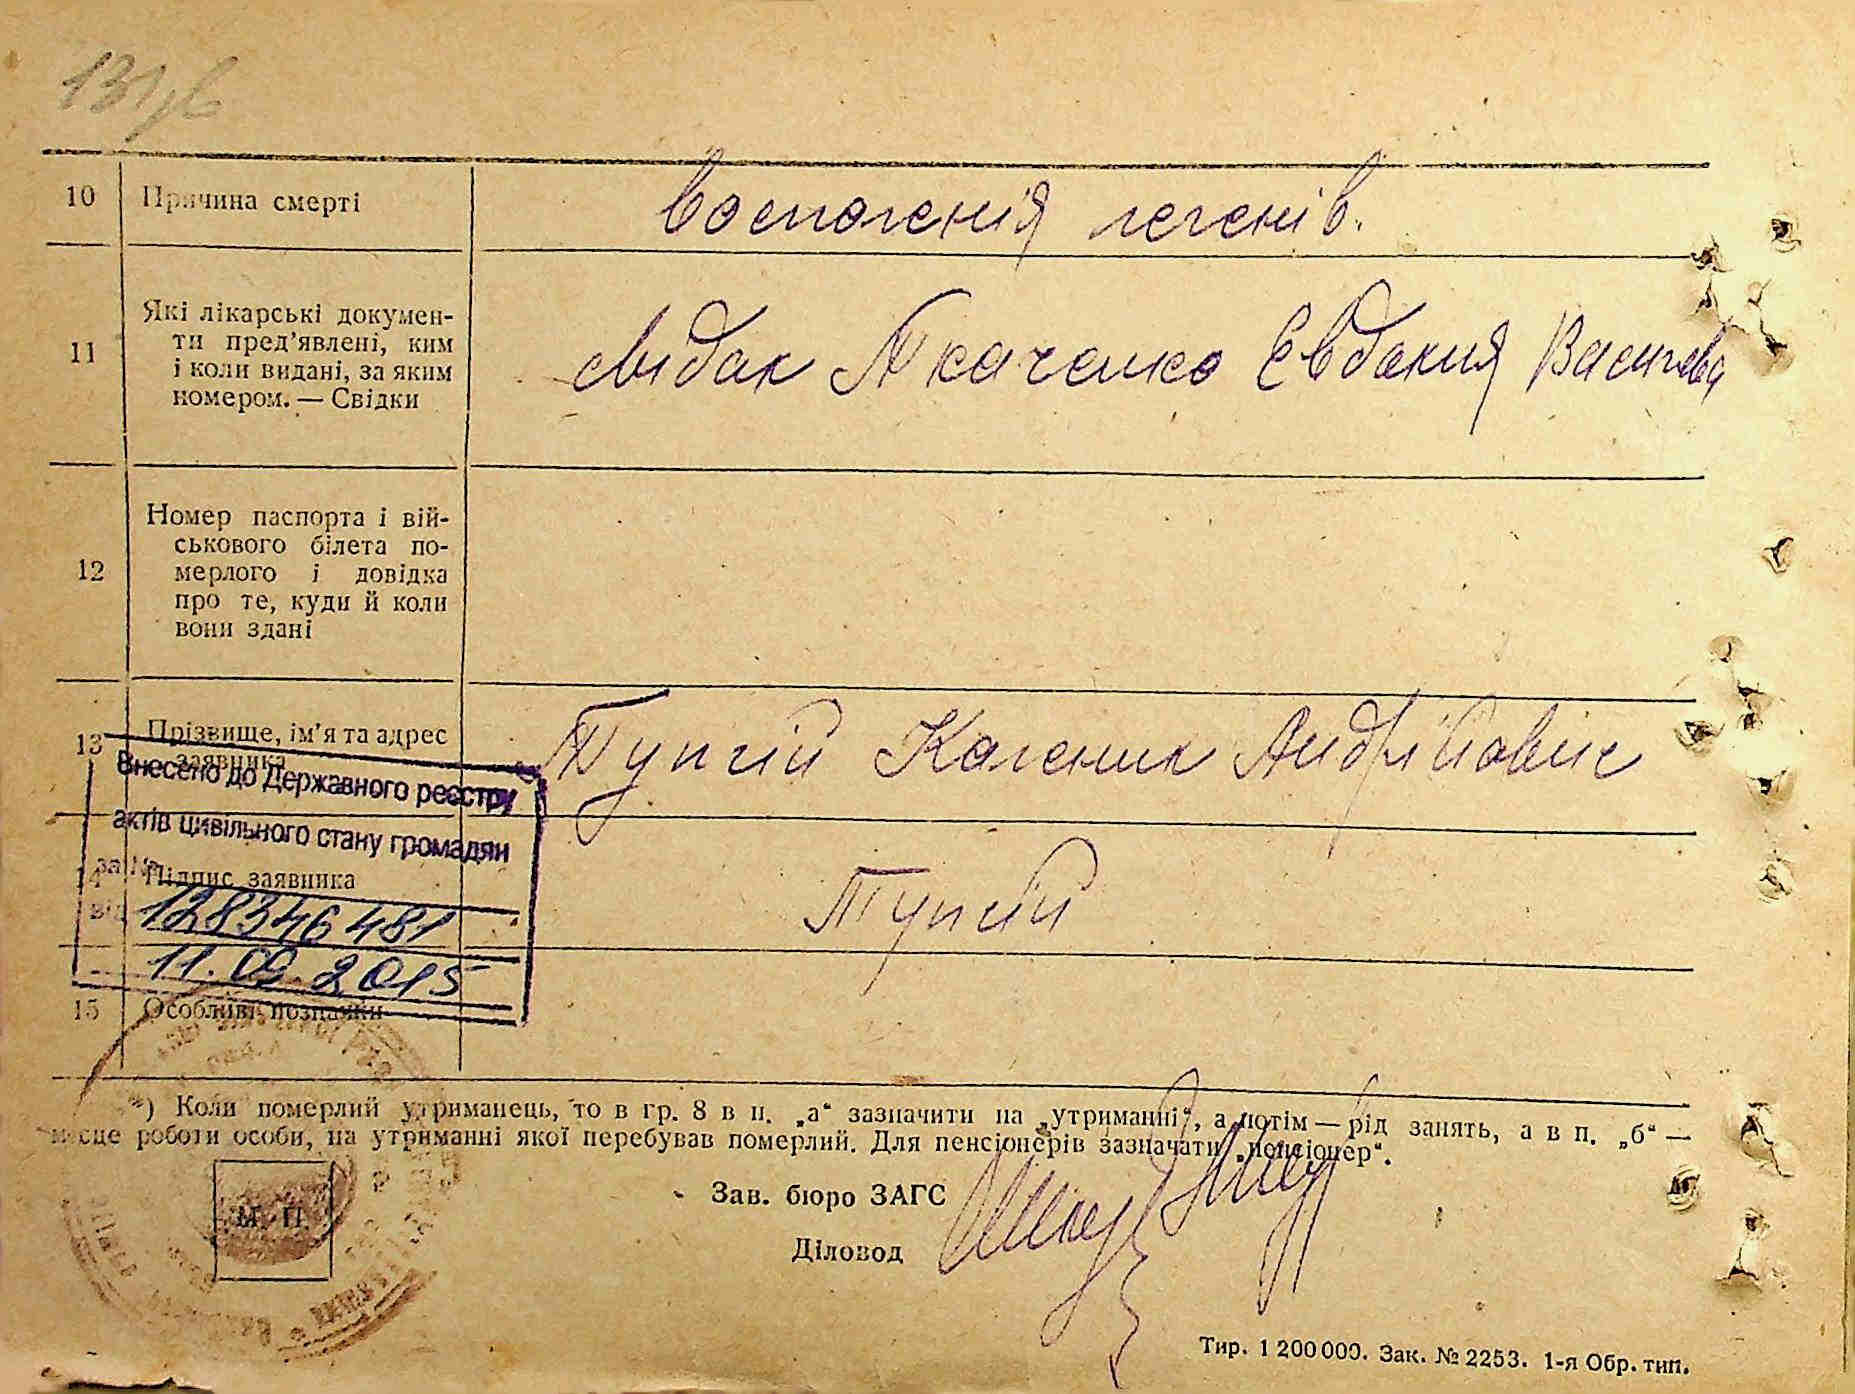 131/6
10 Причина смерті восполенія легенів.
11 Які лікарські докумен-
ти пред'явлені, ким
і коли видані, за яким
номером. — Свідки
свідок Ткаченко Євдокия Васильева
12 Номер паспорта і вій-
ськового білета по-
мерлого і довідка
про те, куди й коли
вони здані
13 Прізвище, ім'я та адрес
заявника
Тупгій Каленик Андрійович
Внесено до Державного реєстру
актів цивільного стану громадян
за №
14 Підпис заявника Тупгій
від 128346481
11.09.2015
15 Особливі познаки
*) Коли померлий утриманець, то в гр. 8 в п. „а“ зазначити на „утриманні“, а потім — рід занять, а в п. „б“ —
місце роботи особи, на утриманні якої перебував померлий. Для пенсіонерів зазначати „пенсіонер“.
М. П.
Зав. бюро ЗАГС
Діловод
Тир. 1 200 000. Зак. № 2253. 1-я Обр. тип.